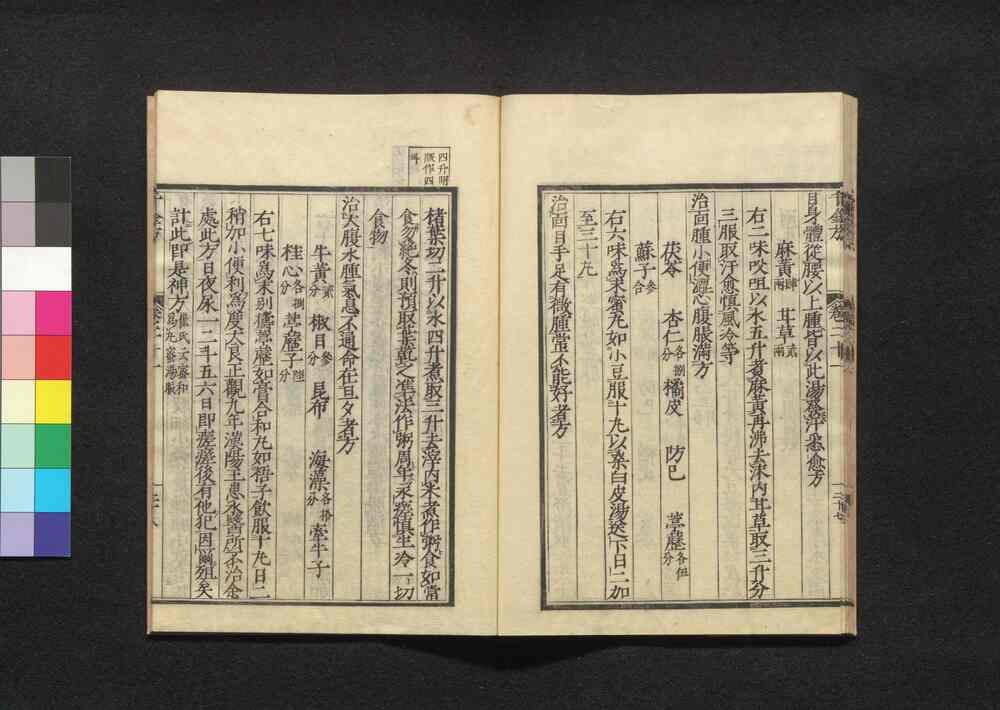 目身體從腰以上腫皆以此湯發汗悉愈方
麻黃肆兩 甘草貳兩
右二味㕮咀以水五升煮麻黃再沸去沫內甘草取三升分
三服取汗愈慎風冷等
治面腫小便澀心腹脹滿方
茯苓 杏仁各捌分 橘皮 防已 葶藶各伍分
蘇子參合
右六味爲末蜜丸如小豆服十丸以桑白皮湯送下日二加
至三十丸
治面目手足有微腫常不能好者方
千金方 卷二十一 二十七
四升明版作四斗
楮葉切二升以水四升煮取三升去滓內米煮作粥食如常
食勿絕冬則預取葉乾之準法作粥周年永瘥慎生冷一切
食物
治大腹水腫氣息不通命在旦夕者方
牛黃貳分 椒目參分 昆布 海藻各拾分 牽牛子
桂心各捌分 葶藶子陸分
右七味爲末別擣葶藶如膏合和丸如梧子飲服十丸日二
稍加小便利爲度大良正觀九年漢陽王患水醫所不治余
處此方日夜尿一二斗五六日即瘥瘥後有他犯因爾殂矣
計此即是神方崔氏云蜜和爲丸蜜湯服
千金方 卷二十一 二十八